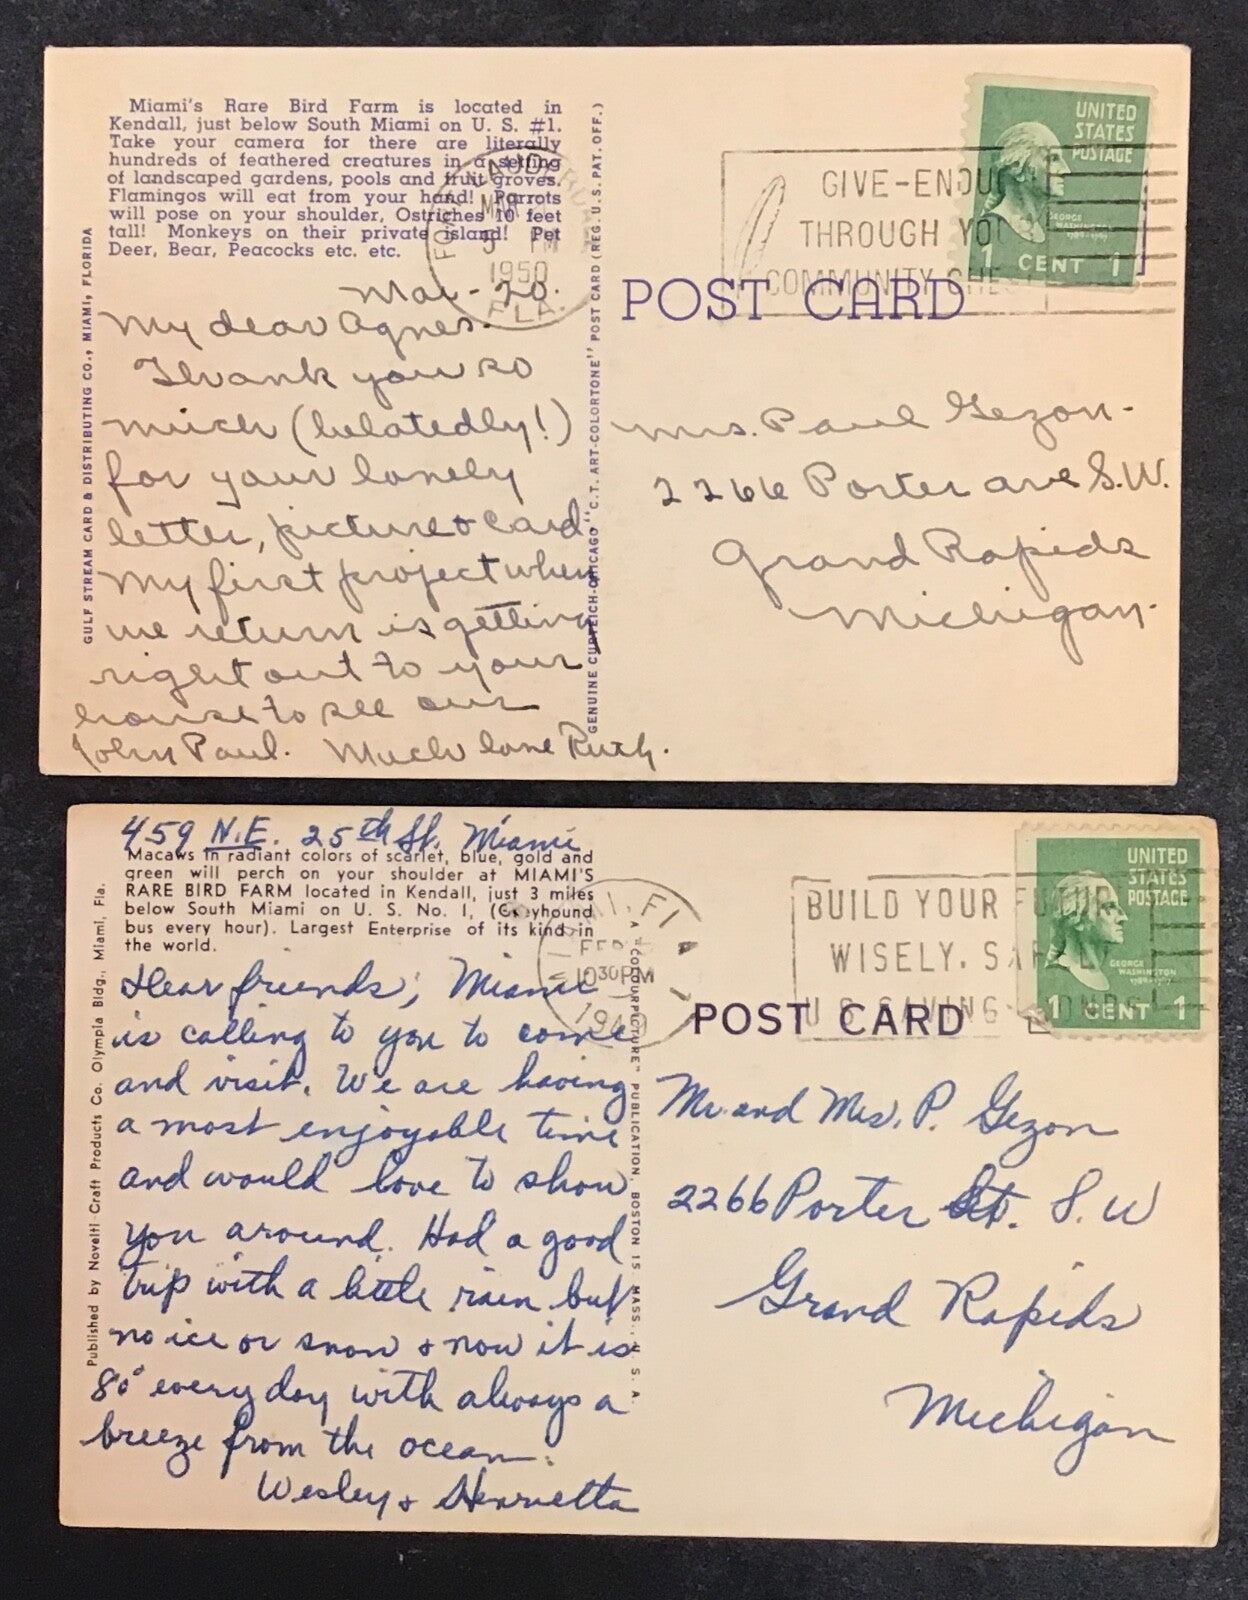 Miami's Rare Bird Farm is located in
Kendall, just below South Miami on U. S. #1.
Take your camera for there are literally
hundreds of feathered creatures in a setting
of landscaped gardens, pools and fruit groves.
Flamingos will eat from your hand! Parrots
will pose on your shoulder, Ostriches 10 feet
tall! Monkeys on their private island! Pet
Deer, Bear, Peacocks etc. etc.
GULF STREAM CARD & DISTRIBUTING CO., MIAMI, FLORIDA
GENUINE CURTEICH-CHICAGO "C.T. ART-COLORTONE" POST CARD (REG. U.S. PAT. OFF.)
FORT LAUDERDALE
MAR
PM
1950
FLA.
GIVE-ENOU
THROUGH YOU
COMMUNITY CHE
UNITED
STATES
POSTAGE
GEORGE
WASHINGTON
1789-1797
1 CENT 1
POST CARD
Mar-20.
My dear Agnes-
Thank you so
much (belatedly!)
for your lovely
letter, picture & card
My first project when
we return is getting
right out to your
house to see our
John Paul. Much love Ruth.
Mrs. Paul Gezon-
2266 Porter ave S.W.
Grand Rapids
Michigan-
459 N.E. 25th St. Miami
Macaws in radiant colors of scarlet, blue, gold and
green will perch on your shoulder at MIAMI'S
RARE BIRD FARM located in Kendall, just 3 miles
below South Miami on U. S. No. 1, (Greyhound
bus every hour). Largest Enterprise of its kind in
the world.
Published by Novelti Craft Products Co. Olympia Bldg., Miami, Fla.
A "COLOURPICTURE" PUBLICATION, BOSTON 15, MASS., U. S. A.
MIAMI, FLA
FEB
10 30 PM
BUILD YOUR FUTUR
WISELY, SAFELY
U S SAVINGS BONDS
UNITED
STATES
POSTAGE
GEORGE
WASHINGTON
1789-1797
1 CENT 1
POST CARD
Dear friends; Miami
is calling to you to come
and visit. We are having
a most enjoyable time
and would love to show
you around. Had a good
trip with a little rain but
no ice or snow & now it is
80° every day with always a
breeze from the ocean.
Wesley & Henrietta
Mr. and Mrs. P. Gezon
2266 Porter St. S.W
Grand Rapids
Michigan